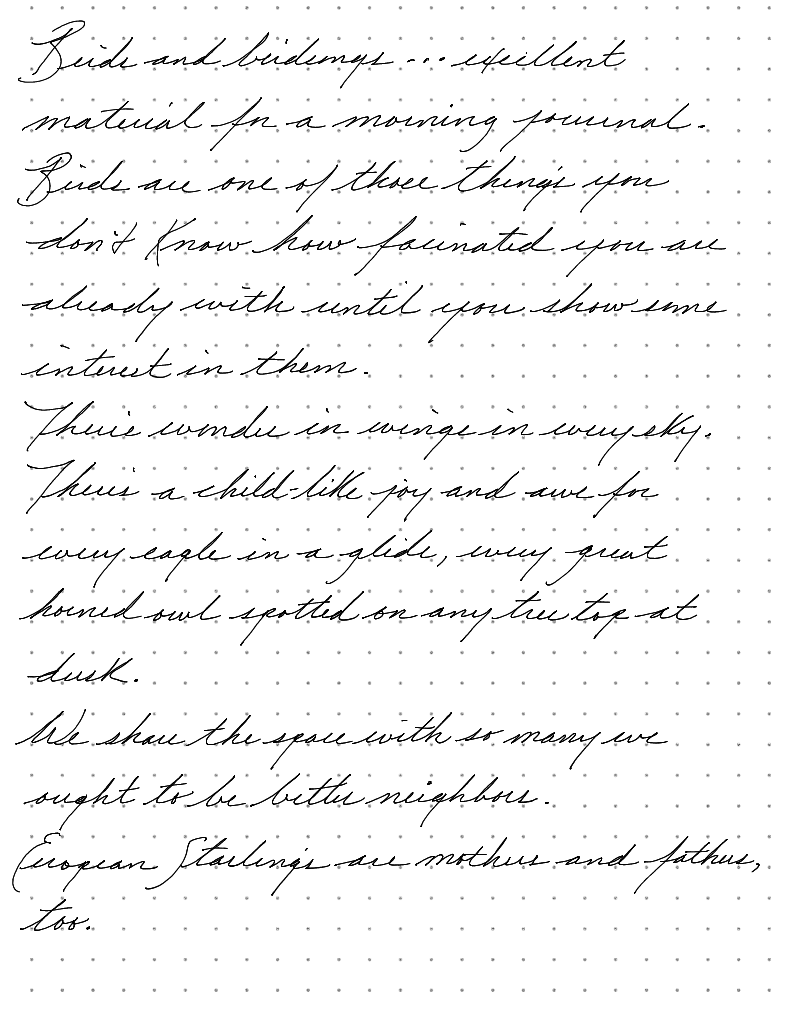 Birds and birdsongs ... excellent
material for a morning journal.
Birds are one of those things you
don't know how facinated you are
already with until you show some
interest in them.
There's wonder in wings in every sky.
There's a child-like joy and awe for
every eagle in a glide, every great
horned owl spotted on any tree top at
dusk.
We share the space with so many we
ought to be better neighbors.
Euopean Starlings are mothers and fathers,
too.